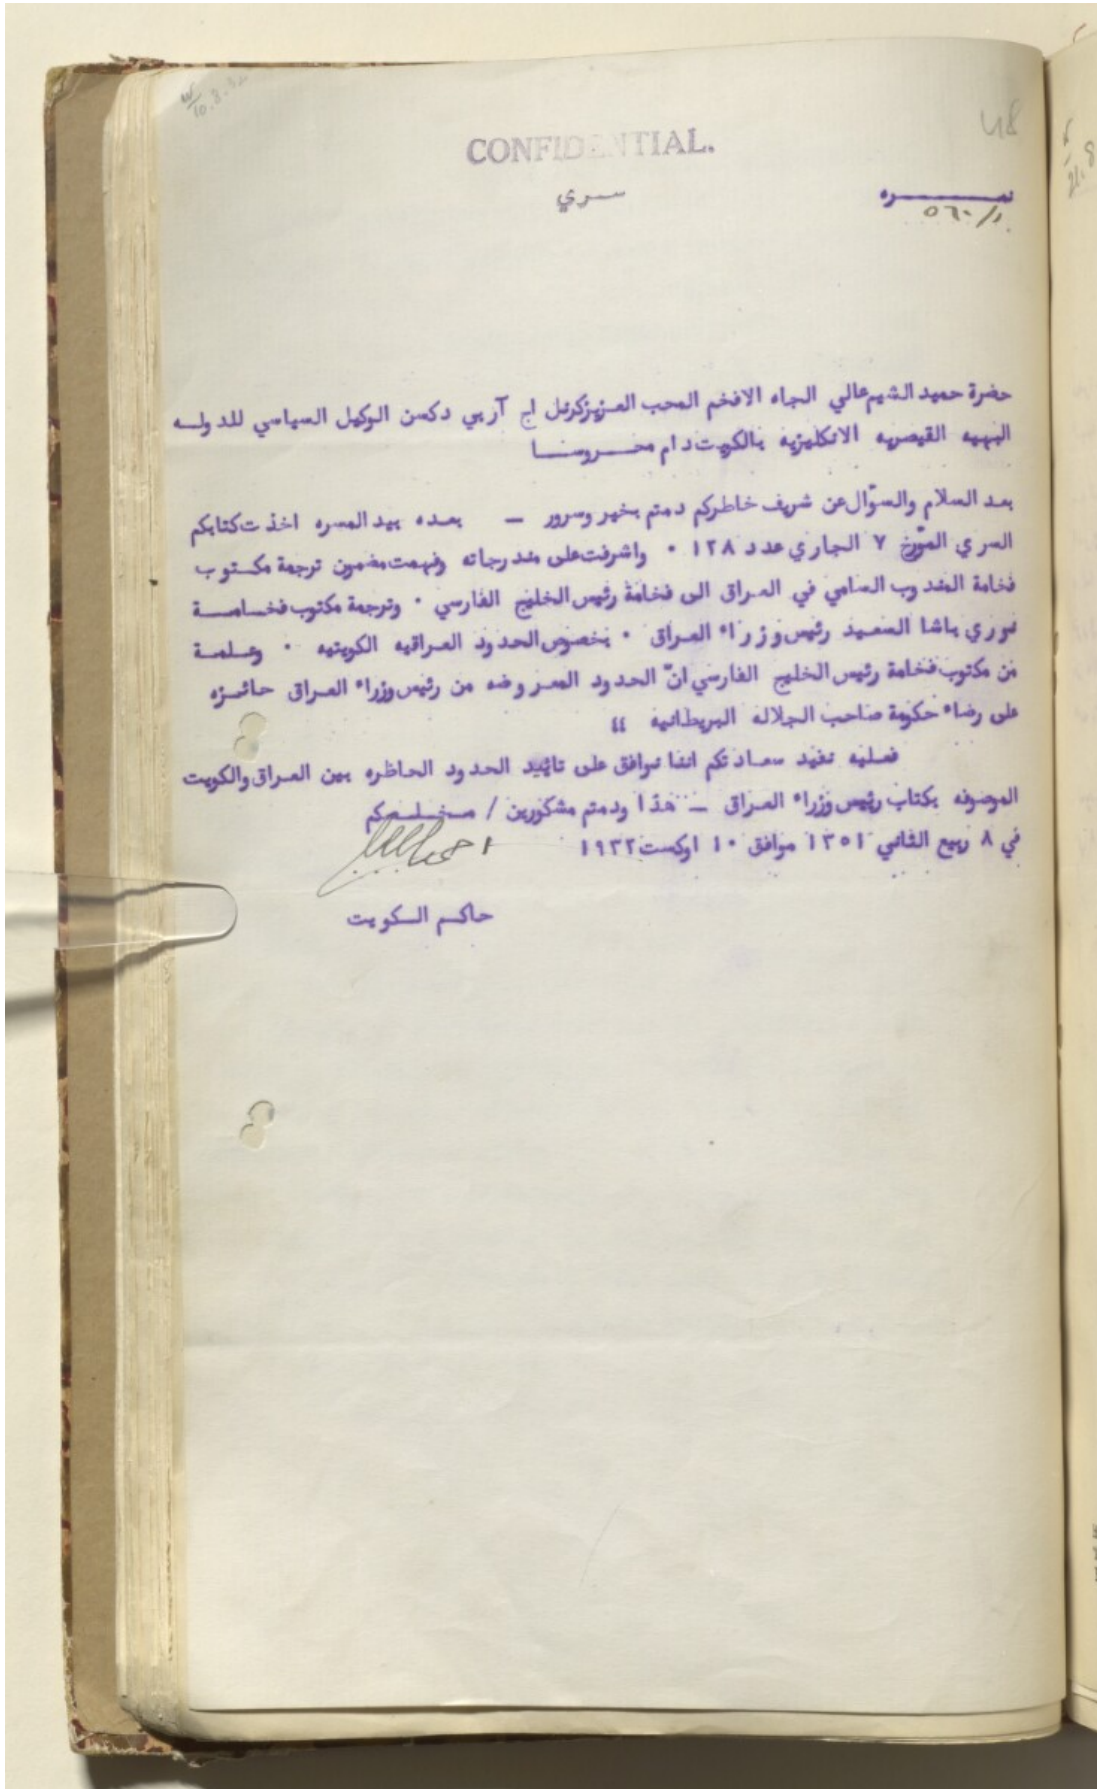 10.8.32
48
CONFIDENTIAL.
سري
نمره
حضرة حميد الشيم عالي الجاه الافخم المحب العزيز كرنل اج آر بي دكسن الوكيل السياسي للدوله
البهيه القيصريه الانكليزيه بالكويت دام محروسا
بعد السلام والسؤال عن شريف خاطركم دمتم بخير وسرور – بعده بيد المسره اخذت كتابكم
السري المؤرخ ٧ الجاري عدد ١٢٨ ٠ واشرفت على مندرجاته وفهمت مضمون ترجمة مكتوب
فخامة المندوب السامي في العراق الى فخامة رئيس الخليج الفارسي ٠ وترجمة مكتوب فخامة
نوري باشا السعيد رئيس وزراء العراق ٠ بخصوص الحدود العراقيه الكويتيه ٠ وعلمة
من مكتوب فخامة رئيس الخليج الفارسي انّ الحدود المعروضه من رئيس وزراء العراق حائزه
على رضاء حكومة صاحب الجلاله البريطانيه ،،
فعليه نفيد سعادتكم اننا نوافق على تائيد الحدود الحاظره بين العراق والكويت
الموصوفه بكتاب رئيس وزراء العراق – هذا ودمتم مشكورين / مخلصكم
في ٨ ربيع الثاني ١٣٥١ موافق ١٠ اوكست ١٩٣٢
حاكم الكويت